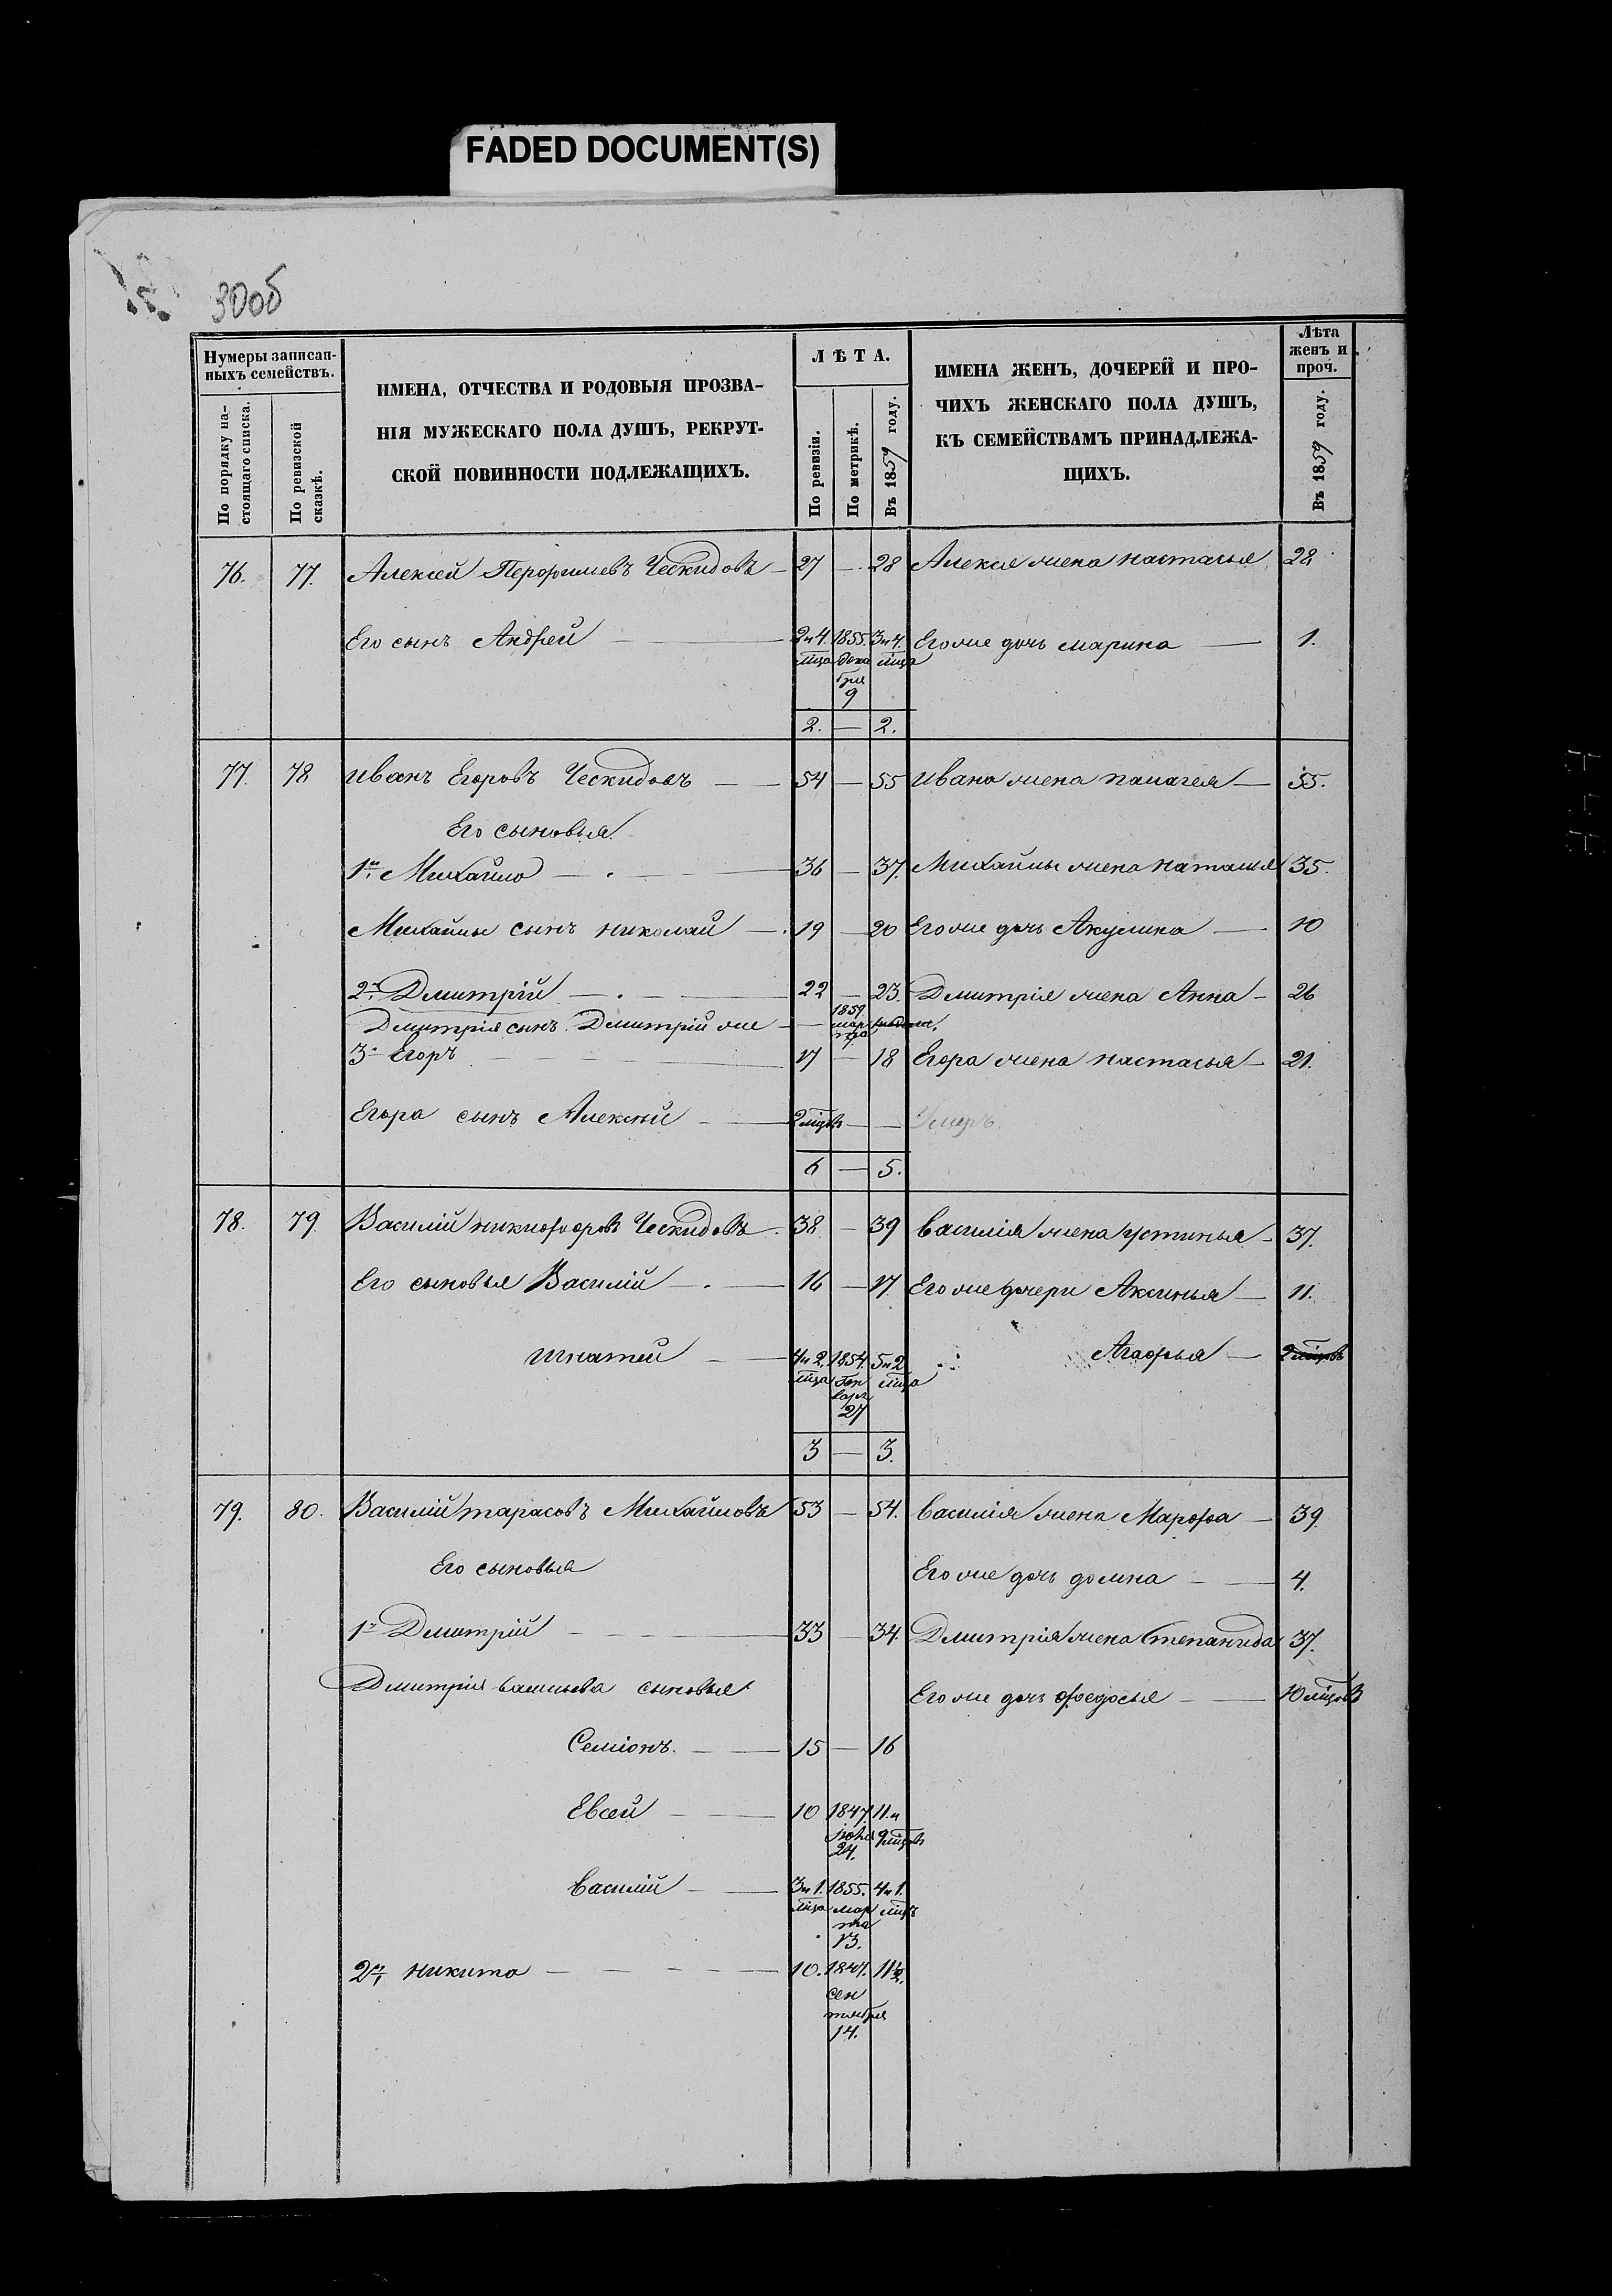 FADED DOCUMENT(S)
30об
Нумеры записан-
ныхъ семействъ.
По порядку на-
стоящаго списка.
По ревизской
сказкѣ.
ИМЕНА, ОТЧЕСТВА И РОДОВЫЯ ПРОЗВА-
НІЯ МУЖЕСКАГО ПОЛА ДУШЪ, РЕКРУТ-
СКОЙ ПОВИННОСТИ ПОДЛЕЖАЩИХЪ.
ЛѢТА.
По ревизіи.
По метрикѣ.
Въ 1859 году.
ИМЕНА ЖЕНЪ, ДОЧЕРЕЙ И ПРО-
ЧИХЪ ЖЕНСКАГО ПОЛА ДУШЪ,
КЪ СЕМЕЙСТВАМЪ ПРИНАДЛЕЖА-
ЩИХЪ.
Лѣта
женъ и
проч.
Въ 1859 году.
76. 77. Алексей Перфишевъ Ческидовъ 27 — 28 Алексея жена настасья 28
Его сынъ Андрей 2и4. 1855. 3и4. Его же дочь марина 1.
мца дека мца
бря
9
2. — 2.
77. 78 иванъ Егоровъ Ческидовъ 54 — 55 ивана жена палагея 55.
Его сыновья
1й Михайло 36 — 37. Михайлы жена наталья 35.
Михайлы сынъ николай 19 — 20 Его же дочь Акулина 10
2й Дмитрій 22 — 23. Дмитрія жена Анна 26
Дмитрія сынъ Дмитрій же — 1859
мар
та
3й Егоръ 17 — 18 Егора жена настасья 21.
Егора сынъ Алексѣй 2 мцовъ — — Умеръ.
6 — 5.
78. 79. Василій никифоровъ Ческидовъ 38 — 39 василія жена устинья 37.
Его сыновья Василій 16 — 17 Его же дочери Аксинья 11.
игнатей 4и2. 1854. 5и2 Агафья 2 мцовъ
мца Ген мца
варя
27
3 — 3.
79. 80. Василій тарасовъ Михайловъ 53 — 54. василія жена Марфа 39.
Его сыновья Его же дочь домна 4.
1й Дмитрій 33 — 34. Дмитрія жена Степанида 37.
Дмитрія васильева сыновья Его же дочь федосья 10 мцовъ
Семіонъ. 15 — 16
Евсей 10 1847 11.и
Іюня 9 мцовъ
24.
василій 3и1. 1855. 4и1.
мца мар мцъ
та
13.
2й никита 10. 1847. 11½.
сен
тября
14.